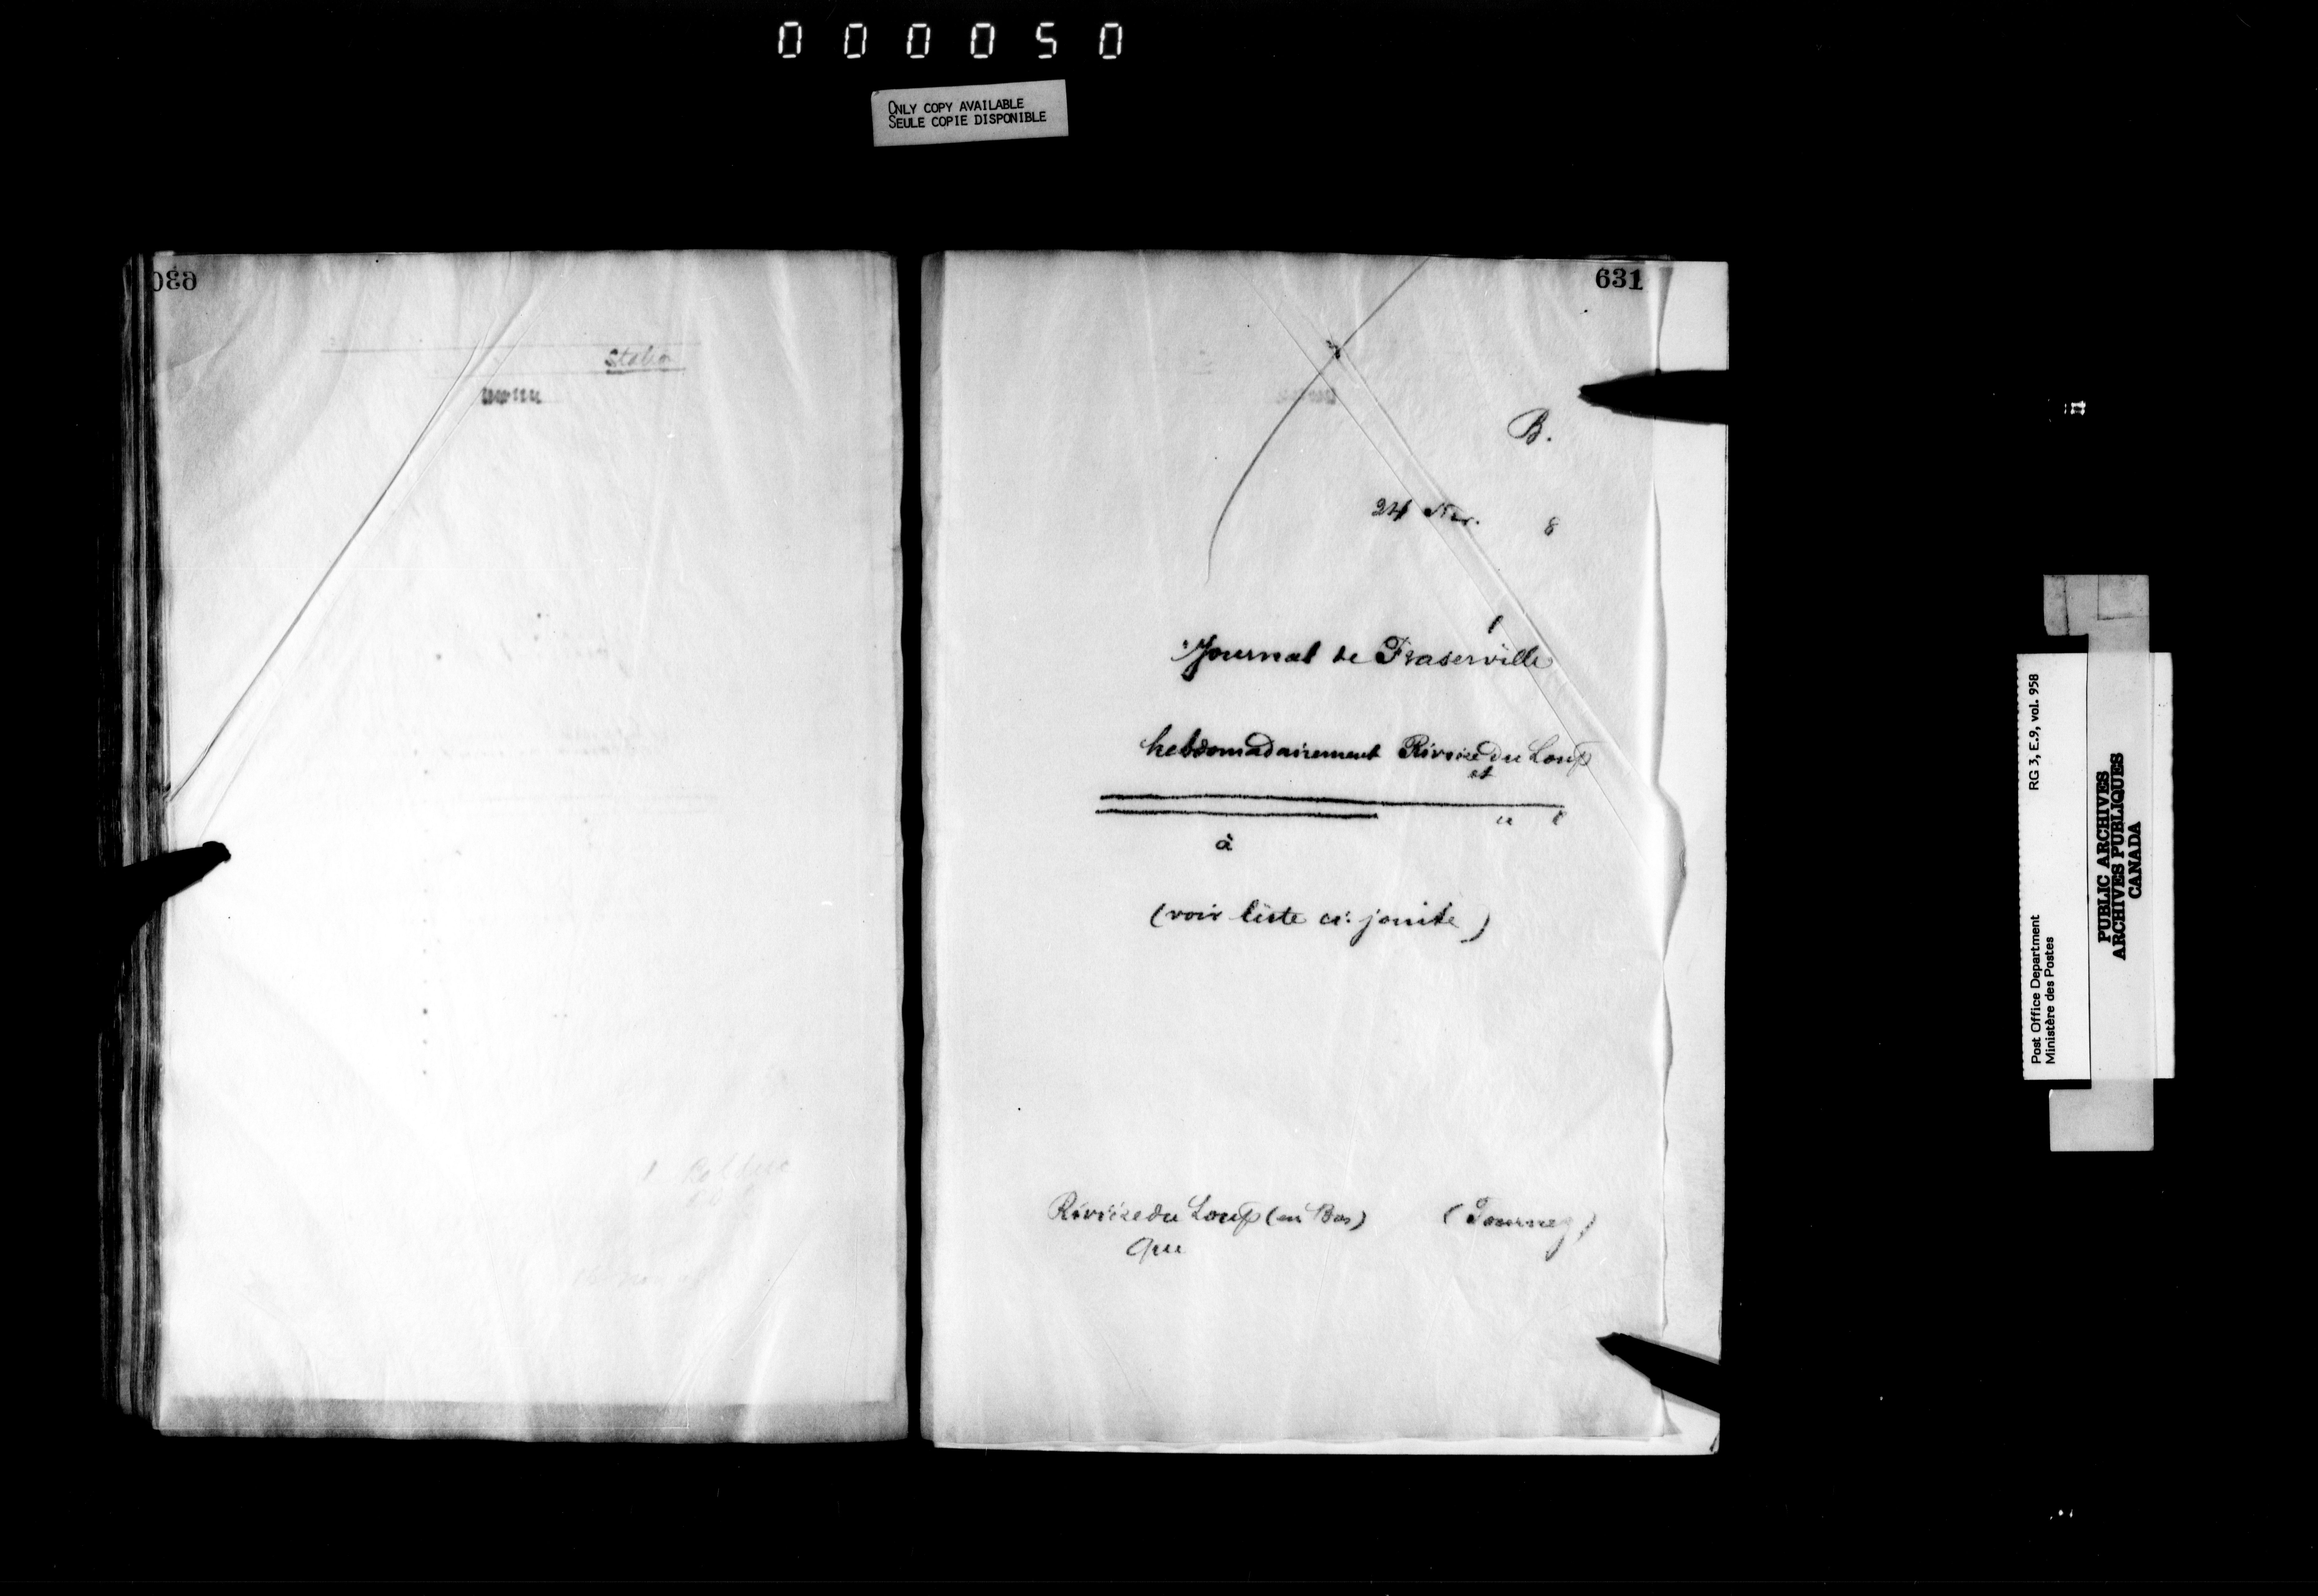 000050
ONLY COPY AVAILABLE
SEULE COPIE DISPONIBLE
630
631
B.
24 Nov. 8
"Journal de Fraserville
hebdomadairement Rivière du Loup
et
à
(voir liste ci: jointe)
Rivière du Loup (en Bas) (Tournez)
Que
RG 3, E.9, vol. 958
Post Office Department
Ministère des Postes
PUBLIC ARCHIVES
ARCHIVES PUBLIQUES
CANADA